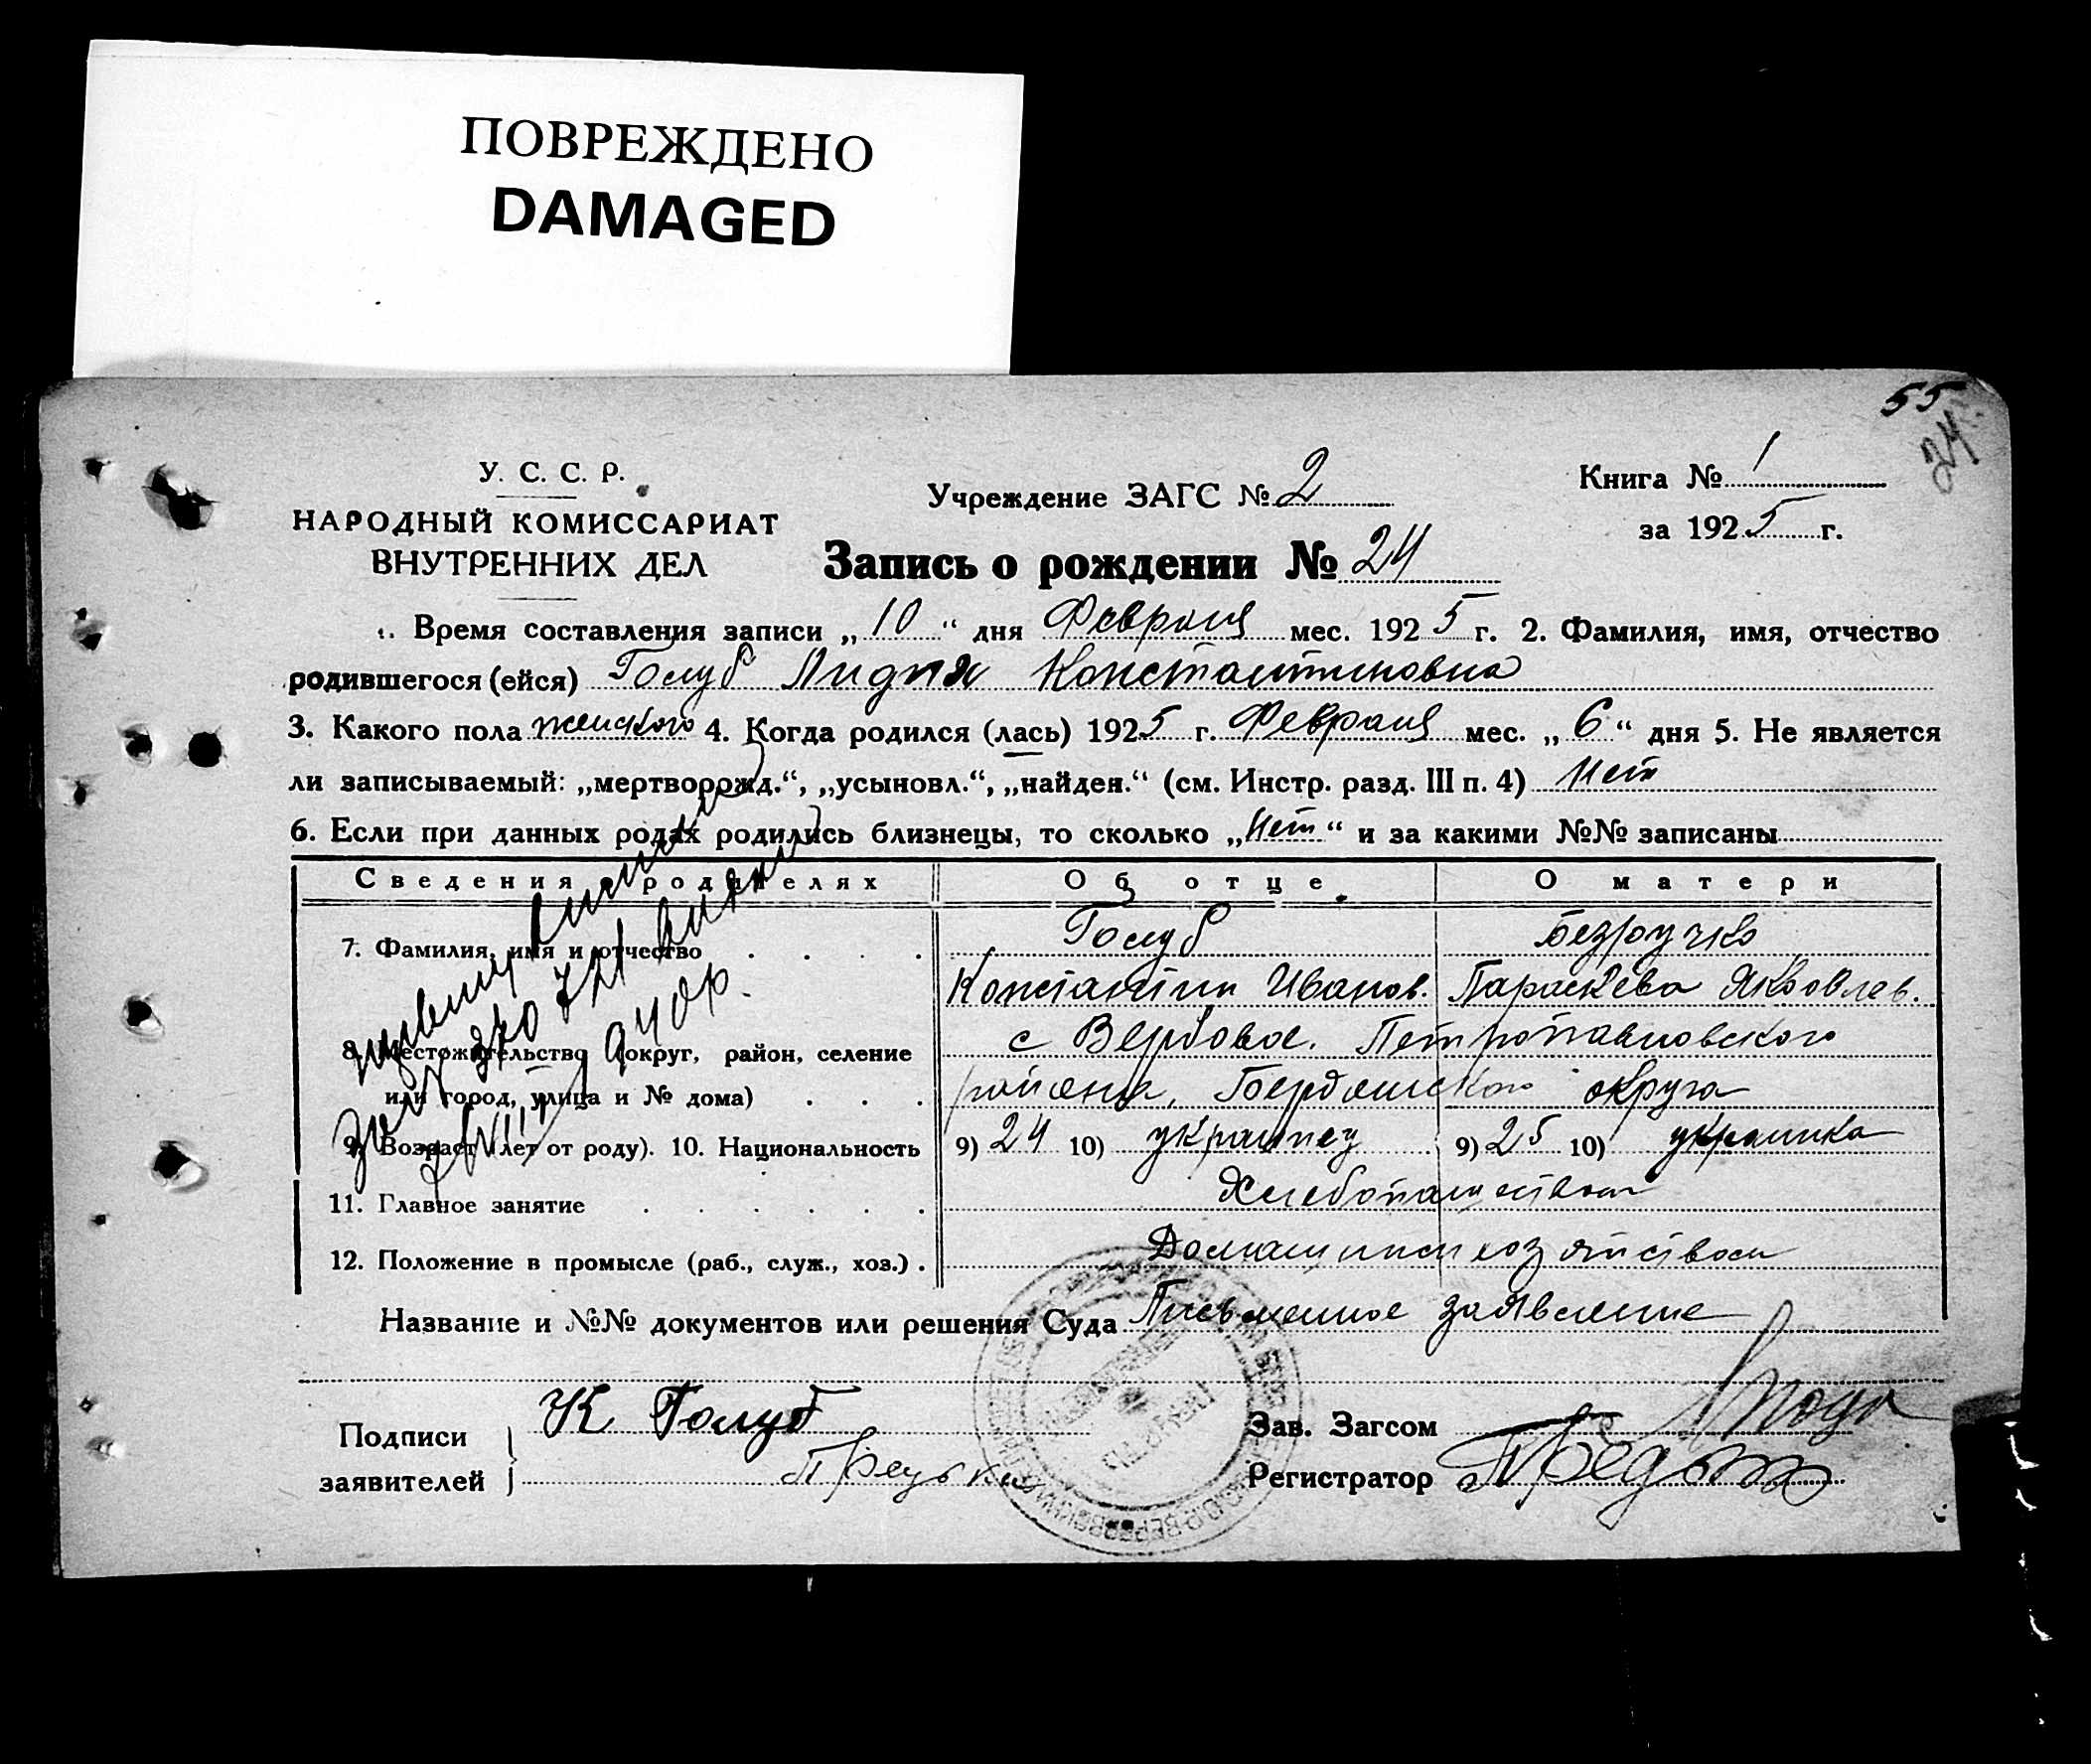 ПОВРЕЖДЕНО
DAMAGED
55
24
У. С. С. Р.
НАРОДНЫЙ КОМИССАРИАТ
ВНУТРЕННИХ ДЕЛ
Учреждение ЗАГС № 2
Книга № 1
за 1925 г.
Запись о рождении № 24
Время составления записи „10“ дня Февраля мес. 1925 г. 2. Фамилия, имя, отчество
родившегося (ейся) Голуб Лидия Константиновна
3. Какого пола женского 4. Когда родился (лась) 1925 г. Февраля мес. „6“ дня 5. Не является
ли записываемый: „мертворожд.“, „усыновл.“, „найден.“ (см. Инстр. разд. III п. 4) Нет
6. Если при данных родах родились близнецы, то сколько „Нет“ и за какими №№ записаны
Сведения о родителях Об отце О матери
7. Фамилия, имя и отчество Голуб Безручко
Константин Иванов. Параскева Яковлев.
8. Местожительство (округ, район, селение с Вербовое. Петропавловского
или город, улица и № дома) района, Бердянского округа
9. Возраст (лет от роду). 10. Национальность 9) 24 10) украинец 9) 25 10) украинка
11. Главное занятие Хлебопашеством
12. Положение в промысле (раб., служ., хоз.) Домашним хозяйством
Название и №№ документов или решения Суда Письменное заявление
Подписи К Голуб Зав. Загсом
заявителей Регистратор